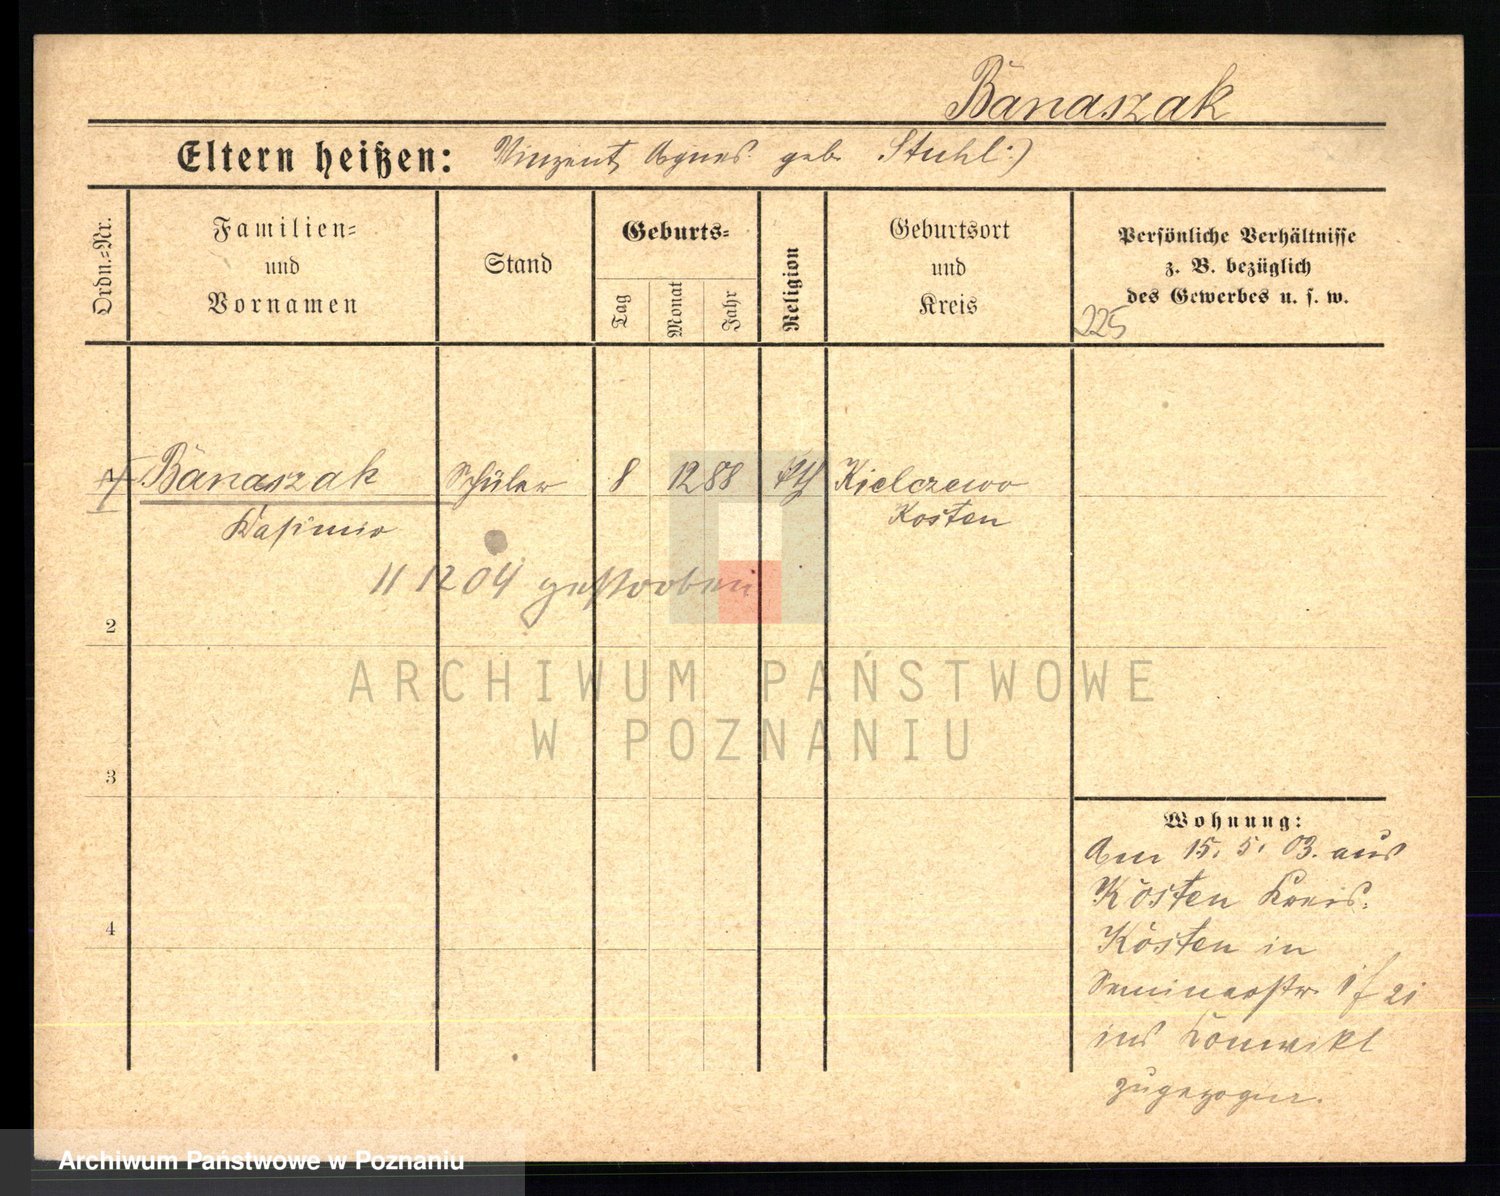 Banaszak
Eltern heißen: Vinzent, Agnes geb Stuhl :)
Ordn.-Nr.
Familien-
und
Vornamen
Stand
Geburts-
Tag
Monat
Jahr
Religion
Geburtsort
und
Kreis
Persönliche Verhältnisse
z. B. bezüglich
des Gewerbes u. s. w.
225
1 Banaszak Schüler 8 12 88 kth Kielczewo
Kasimir Kosten
11 12 04 gestorben
2
3
4
Wohnung:
Am 15. 5. 03. aus
Kosten Kreis
Kosten in
Seminarstr
ins Konvikt
zugezogen.
ARCHIWUM PAŃSTWOWE
W POZNANIU
Archiwum Państwowe w Poznaniu